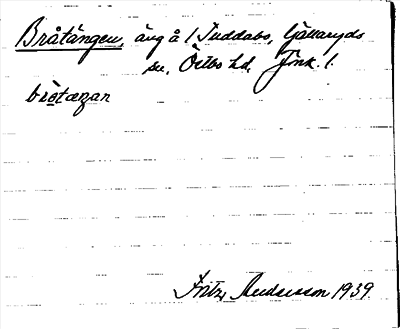 Bråtängen, äng å 1 Tuddabo, Ljuttaryds
sn, Östbo hd, Jönk. l.
bròtæŋan
Fritz Andersson 1939.